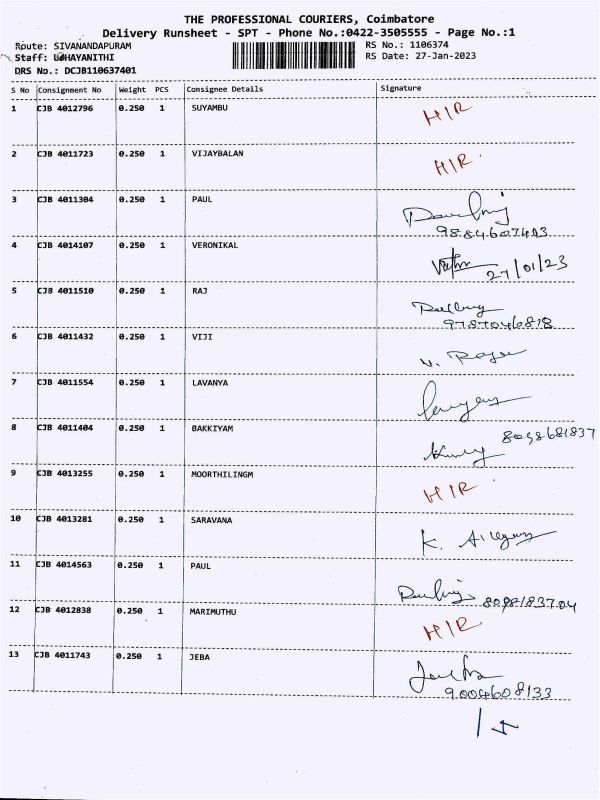 THE PROFESSIONAL COURIERS, Coimbatore
Delivery Runsheet - SPT - Phone No.:0422-3505555 - Page No.:1
Route: SIVANANDAPURAM
RS No.: 1106374
Staff: UDHAYANITHI
RS Date: 27-Jan-2023
DRS No.: DCJB110637401
S No Consignment No Weight PCS Consignee Details Signature
1 CJB 4012796 0.250 1 SUYAMBU H/R
2 CJB 4011723 0.250 1 VIJAYBALAN H/R.
3 CJB 4011304 0.250 1 PAUL
9884607403
4 CJB 4014107 0.250 1 VERONIKAL
27/01/23
5 CJB 4011510 0.250 1 RAJ
9787046818
6 CJB 4011432 0.250 1 VIJI
7 CJB 4011554 0.250 1 LAVANYA
8 CJB 4011404 0.250 1 BAKKIYAM
9 CJB 4013255 0.250 1 MOORTHILINGM H/R
10 CJB 4013281 0.250 1 SARAVANA
11 CJB 4014563 0.250 1 PAUL
12 CJB 4012838 0.250 1 MARIMUTHU H/R
13 CJB 4011743 0.250 1 JEBA
9004608133